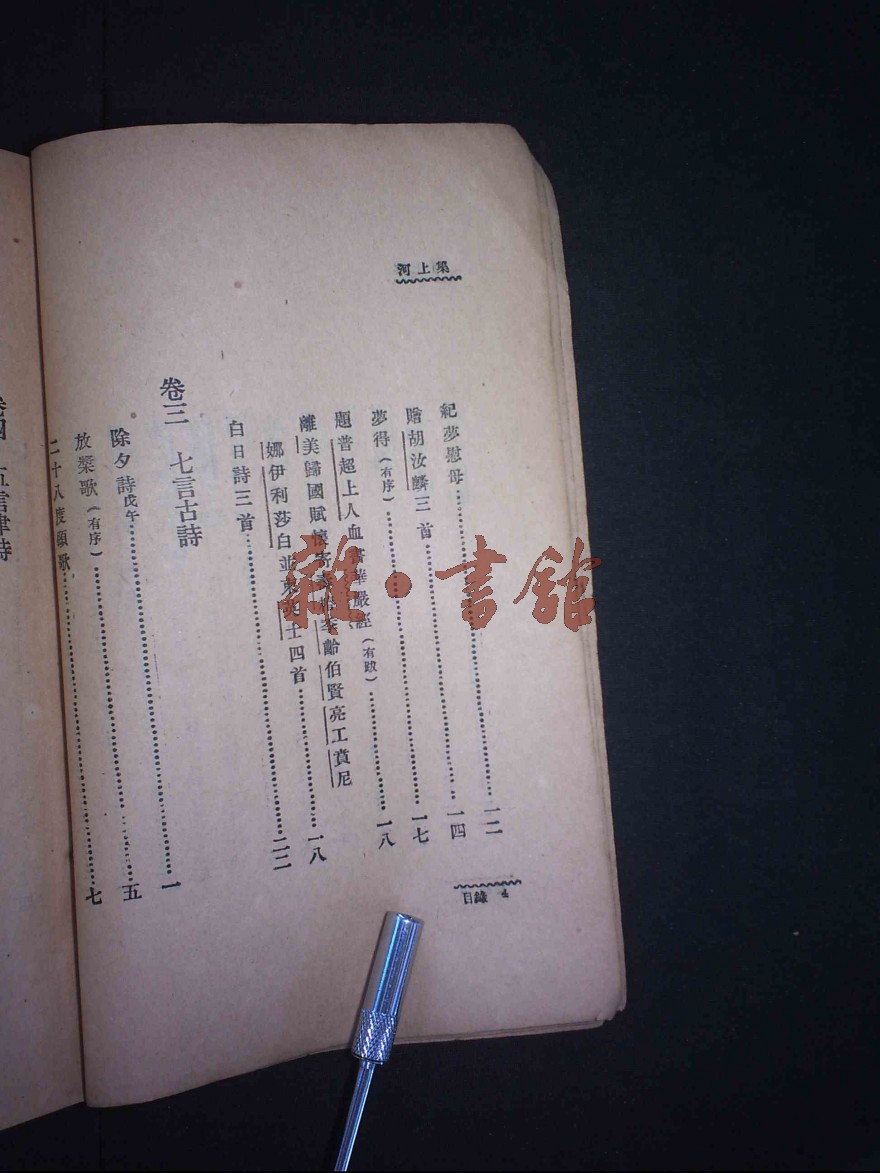 河上集
紀夢慰母……一二
贈胡汝麟三首……一四
夢得（有序）……一七
題普超上人血書華嚴經（有跋）……一八
離美歸國賦懷寄 齡伯賢亮工賁尼
娜伊利莎白並 士四首……一八
白日詩三首……二二
卷三 七言古詩
除夕詩戊午……一
放槳歌（有序）……五
二十八度 歌……七
目錄 4
五言律詩
雜·書館